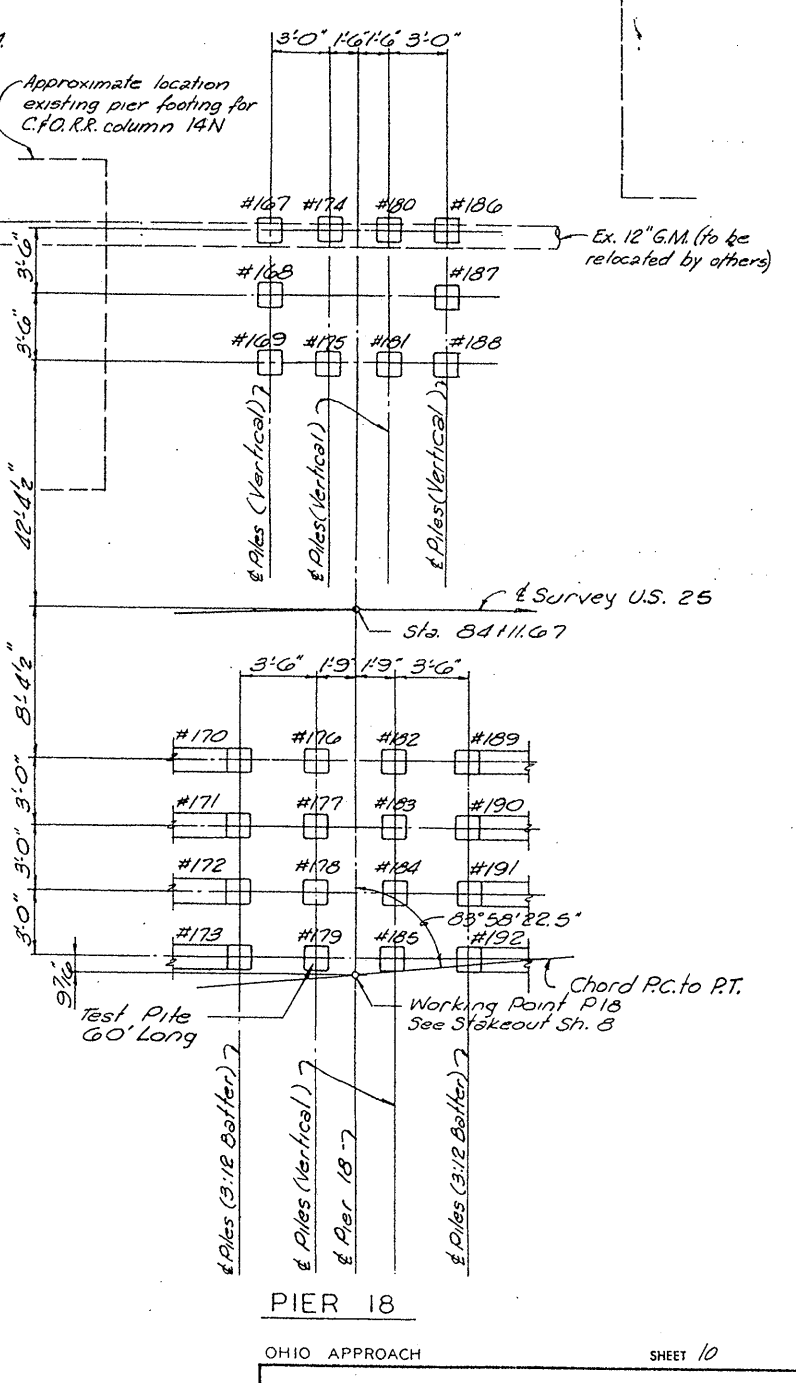 3'-0" 1'-6" 1'-6" 3'-0"
Approximate location
existing pier footing for
C.&O. R.R. column 14N
#167 #174 #180 #186
Ex. 12" G.M. (to be
relocated by others)
3'-6"
#168 #187
3'-6"
#169 #175 #181 #188
₵ Piles (Vertical)
₵ Piles (Vertical)
₵ Piles (Vertical)
42'-4½"
₵ Survey U.S. 25
Sta. 84+11.67
8'-4½"
3'-6" 1'-9" 1'-9" 3'-6"
#170 #176 #182 #189
3'-0"
#171 #177 #183 #190
3'-0"
#172 #178 #184 #191
3'-0"
83°58'22.5"
#173 #179 #185 #192
Chord P.C. to P.T.
Test Pile
60' Long
Working Point P18
See Stakeout Sh. 8
₵ Piles (3:12 Batter)
₵ Piles (Vertical)
₵ Pier 18
₵ Piles (3:12 Batter)
PIER 18
OHIO APPROACH SHEET 10